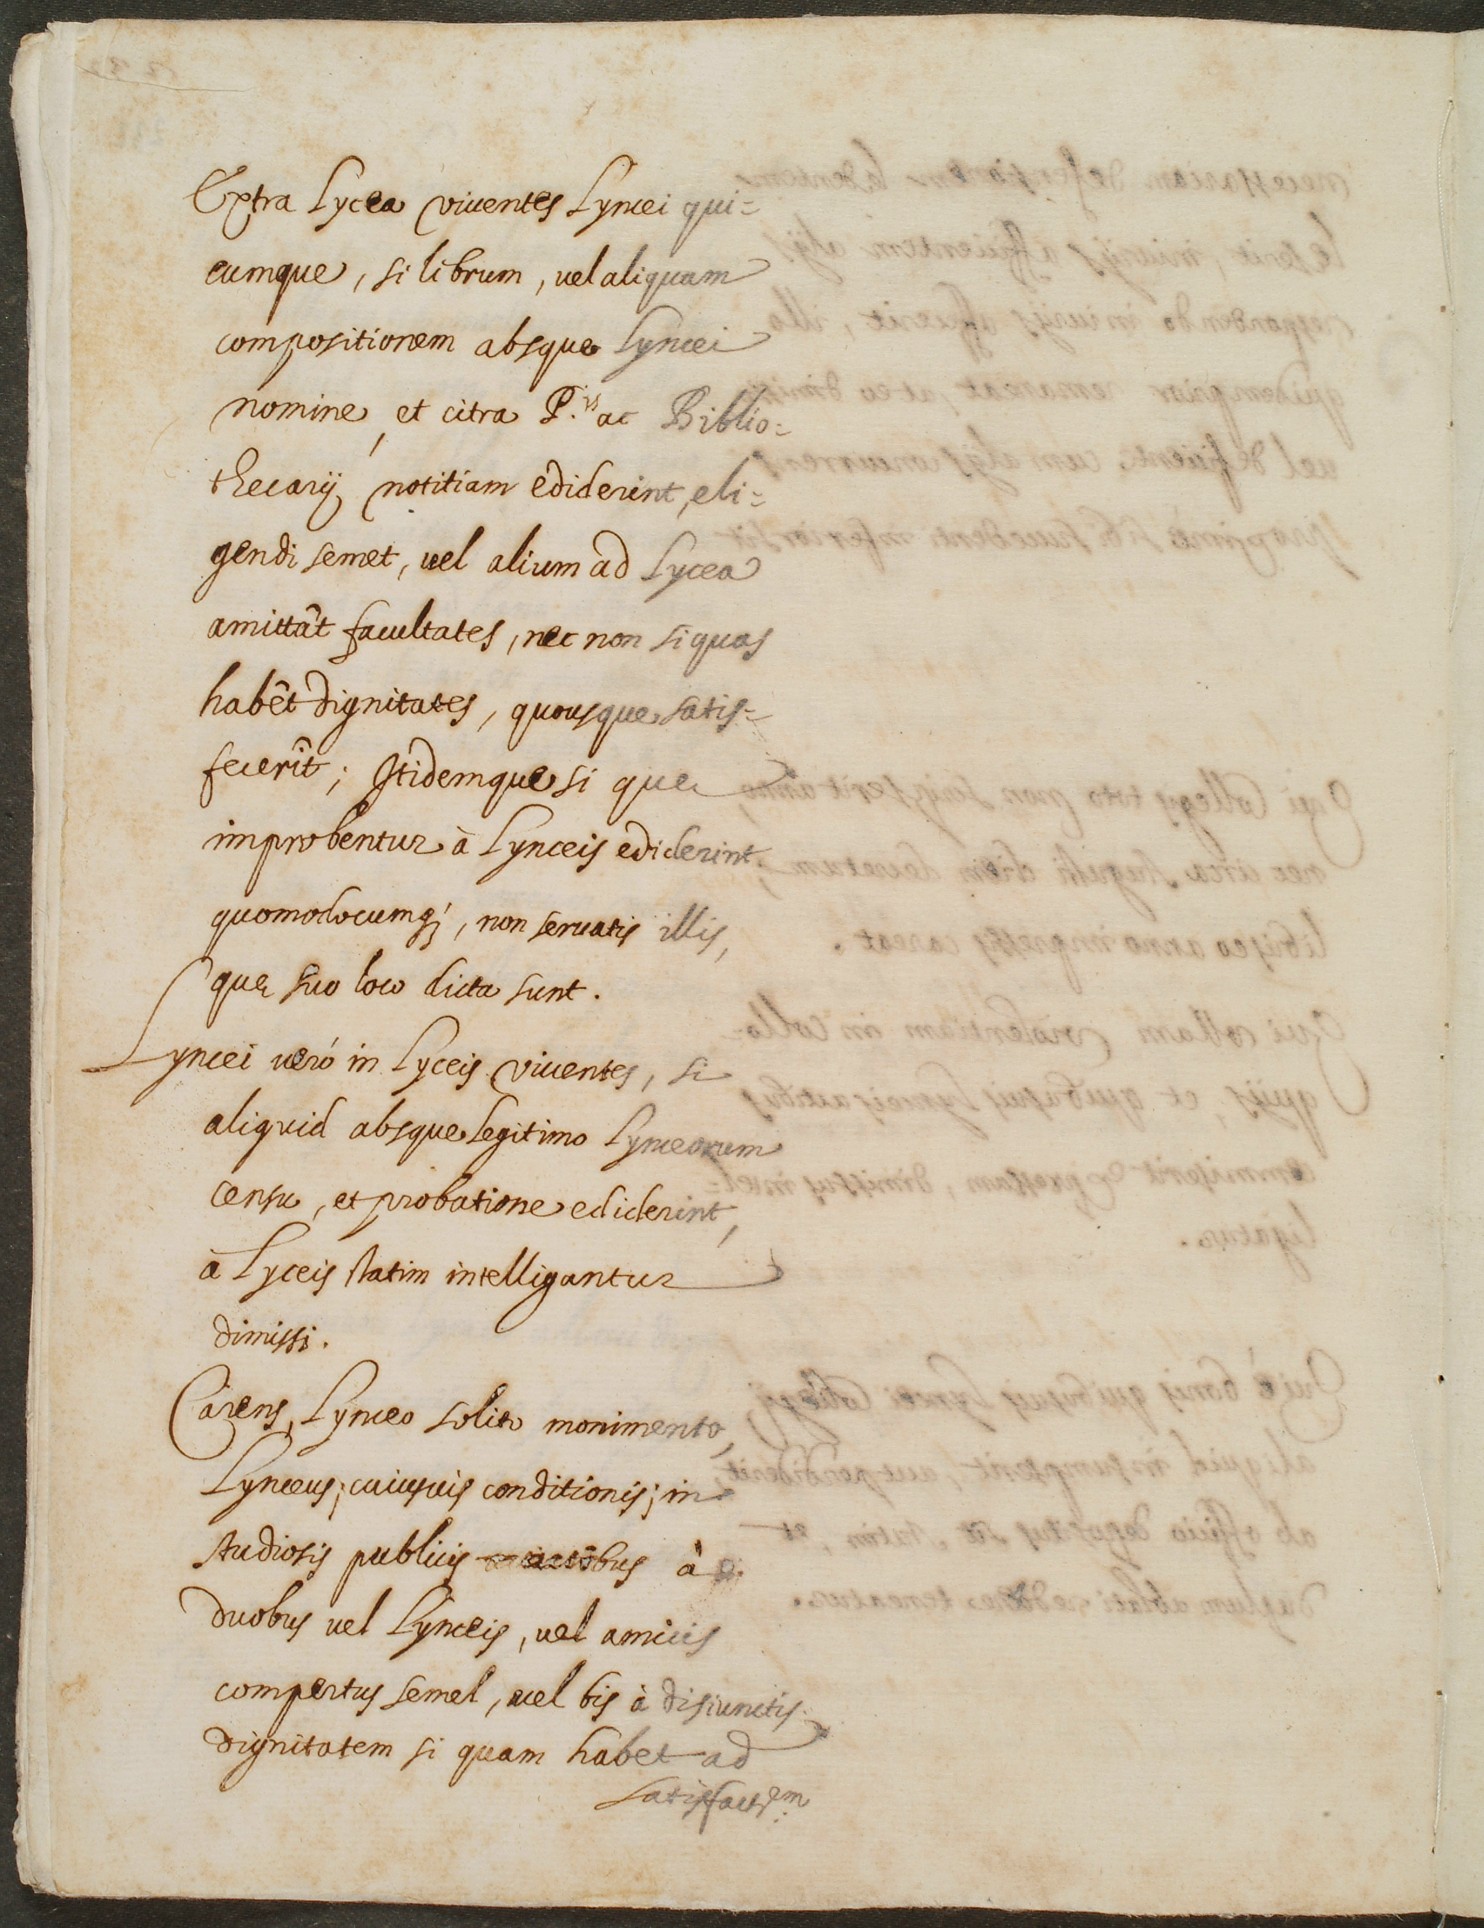 Extra Lycea viuentes Lyncei qui=
cumque, si librum, uel aliquam
compositionem absque Lyncei
nomine, et citra P.is ac Biblio=
thecarij notitiam ediderint, eli=
gendi semet, uel alium ad Lycea
amittãt facultates, nec non si quas
habẽt dignitates, quousque satis=
fecerĩt; Itidemque si quę
improbentur à Lynceis ediderint,
quomodocumq;, non seruatis illis,
quę suo loco dicta sunt.
Lyncei uerò in Lyceis viuentes, si
aliquid absque legitimo Lynceorum
censu, et probatione ediderint,
à Lyceis statim intelligantur
dimissi.
Carens Lynceo solito monimento,
Lynceus; cuiusuis conditionis; in
studiosis publicis actibus à
duobus uel Lynceis, uel amicis
compertus semel, uel bis à disiunctis
dignitatem si quam habet ad
satisfact.em